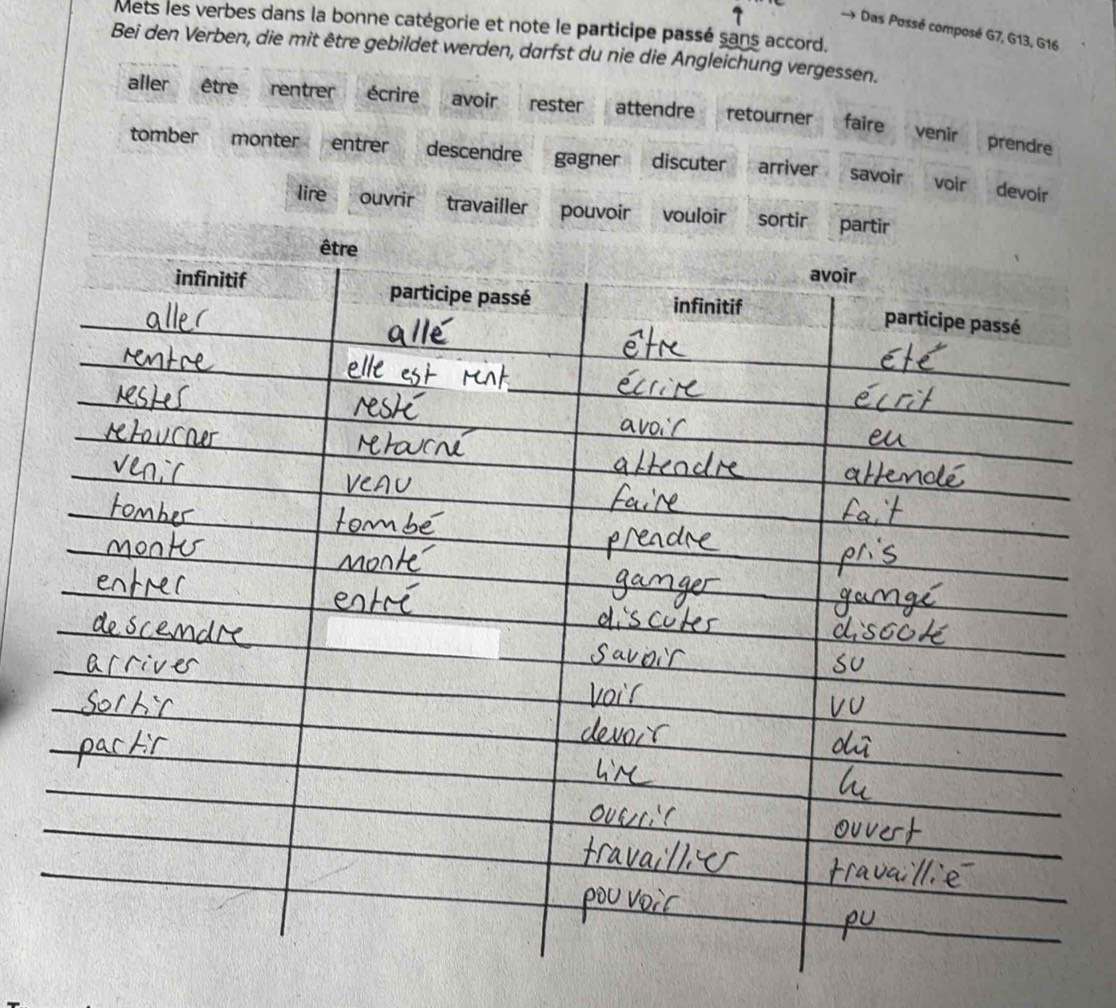 Mets les verbes dans la bonne catégorie et note le participe passé sans accord.
→ Das Passé composé G7, G13, G16
Bei den Verben, die mit être gebildet werden, darfst du nie die Angleichung vergessen.
aller être rentrer écrire avoir rester attendre retourner faire venir prendre
tomber monter entrer descendre gagner discuter arriver savoir voir devoir
lire ouvrir travailler pouvoir vouloir sortir partir
être avoir
infinitif participe passé infinitif participe passé
aller allé être été
rentre elle est rent écrire écrit
rester resté avoir eu
retourner retourné attendre attendé
venir venu faire fait
tomber tombé prendre pris
monter monté ganger gangé
entrer entré discuter discuté
descendre savoir su
arriver voir vu
sortir devoir dû
partir lire lu
ouvrir ouvert
travaillier travaillié
pouvoir pu